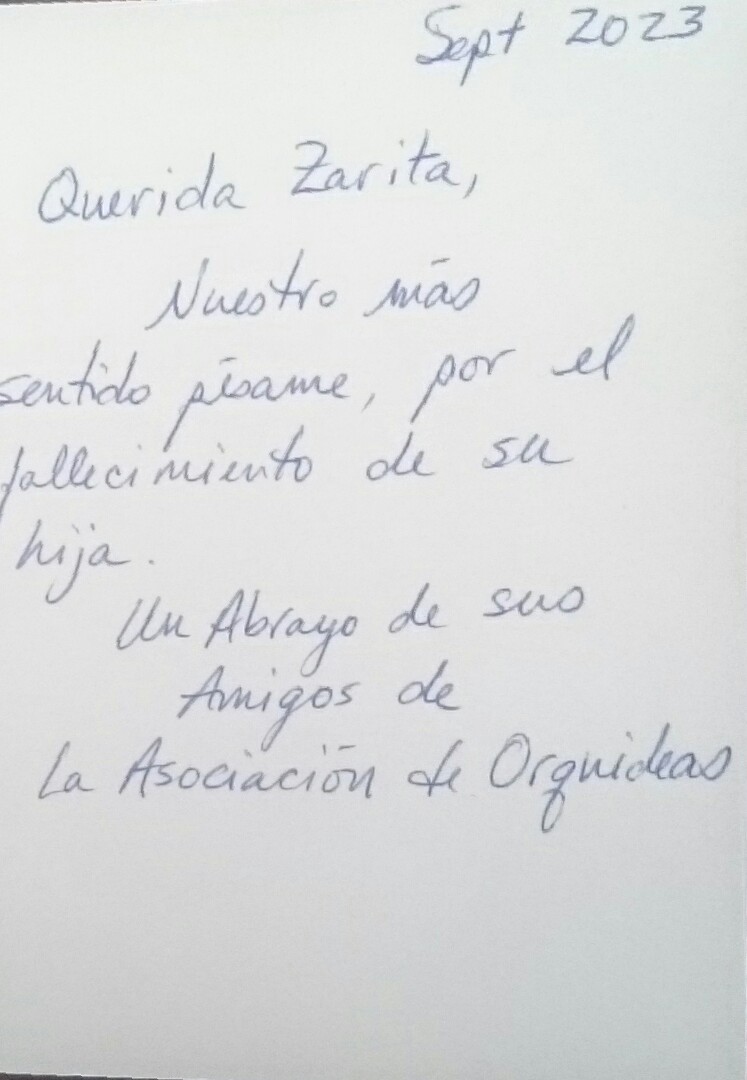 Sept 2023
Querida Zarita,
Nuestro más
sentido pésame, por el
fallecimiento de su
hija.
Un Abrazo de sus
Amigos de
La Asociación de Orquideas